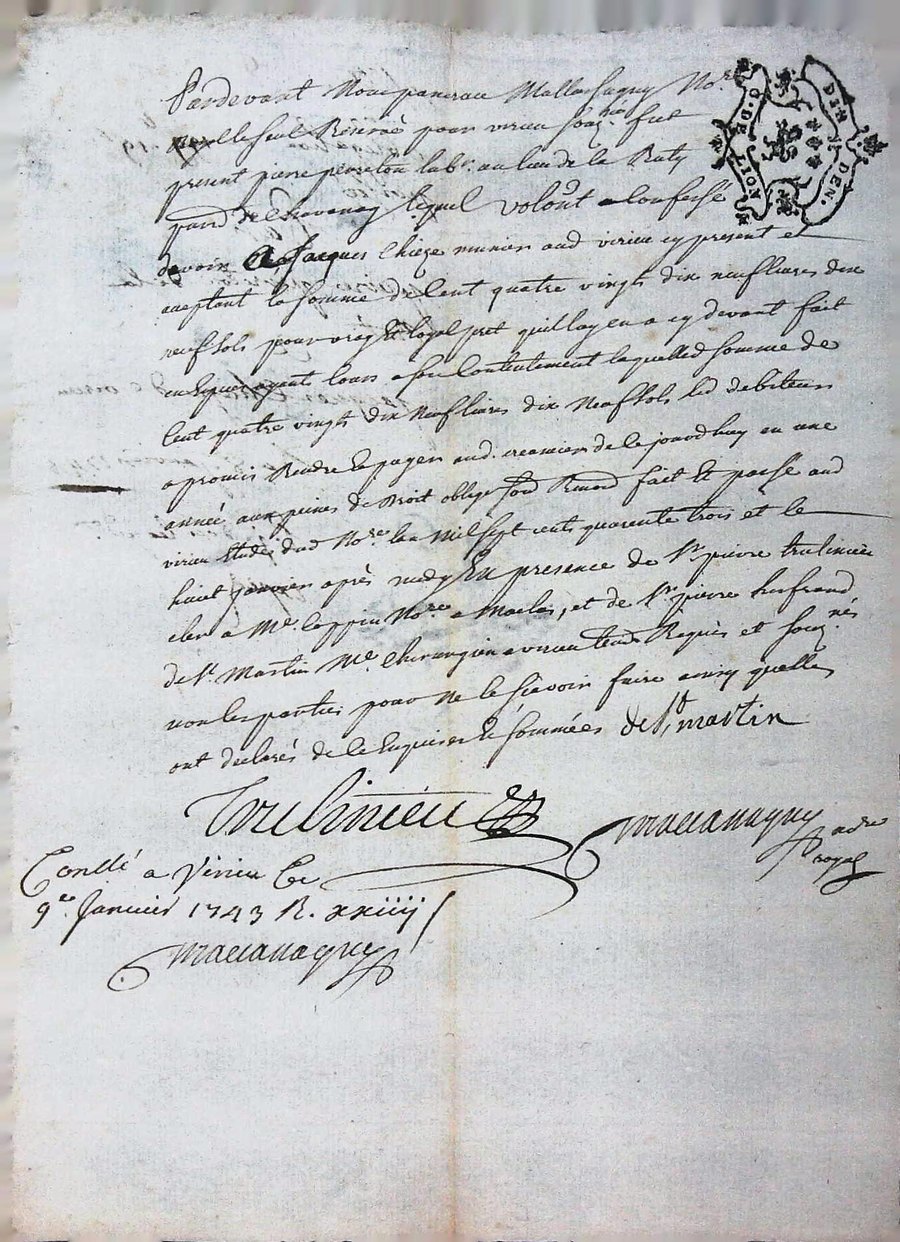 Pardevant Nous pancrace Mallassagny No.re
Royal le seul Reservé pour virieu souz.né fut
present pierre perreton lab.r au lieu de la Raty
parr.se de Chavanay lequel volon.t a confessé
devoir A Jacques Chieze munier aud virieu cy present et
aceptant la somme de Cent quatre vingts dix neuf livres dix
neuf sols pour vray et loyal pret quil luy en a cy devant fait
en especes ayants cours a son Contentement laquelled somme de
Cent quatre vingts dix Neuf livres dix Neuf sols led debiteur
a promis Rendre et payer aud. creancier de ce jourdhuy en une
année aux peines de Droit oblige fait et passé aud
virieu Etude dud No.re Lan Mil sept cents quarente trois et le
huit Janvier après midy En presence de S.r pierre trulinieu
clerc à M.e No.re a Maclas, et de S.r pierre
de S.t Martin M.e Chirurgien a virieu Requis et souz.nés
non les parties pour Ne le sçavoir faire ainsy quelles
ont declarés de ce Enquises et sommées de S.t martin
Trulinieu
mallassagny no.re
royal
Conllé a Virieu Ce
9.e Janvier 1743 R. xxiiij s
mallassagny